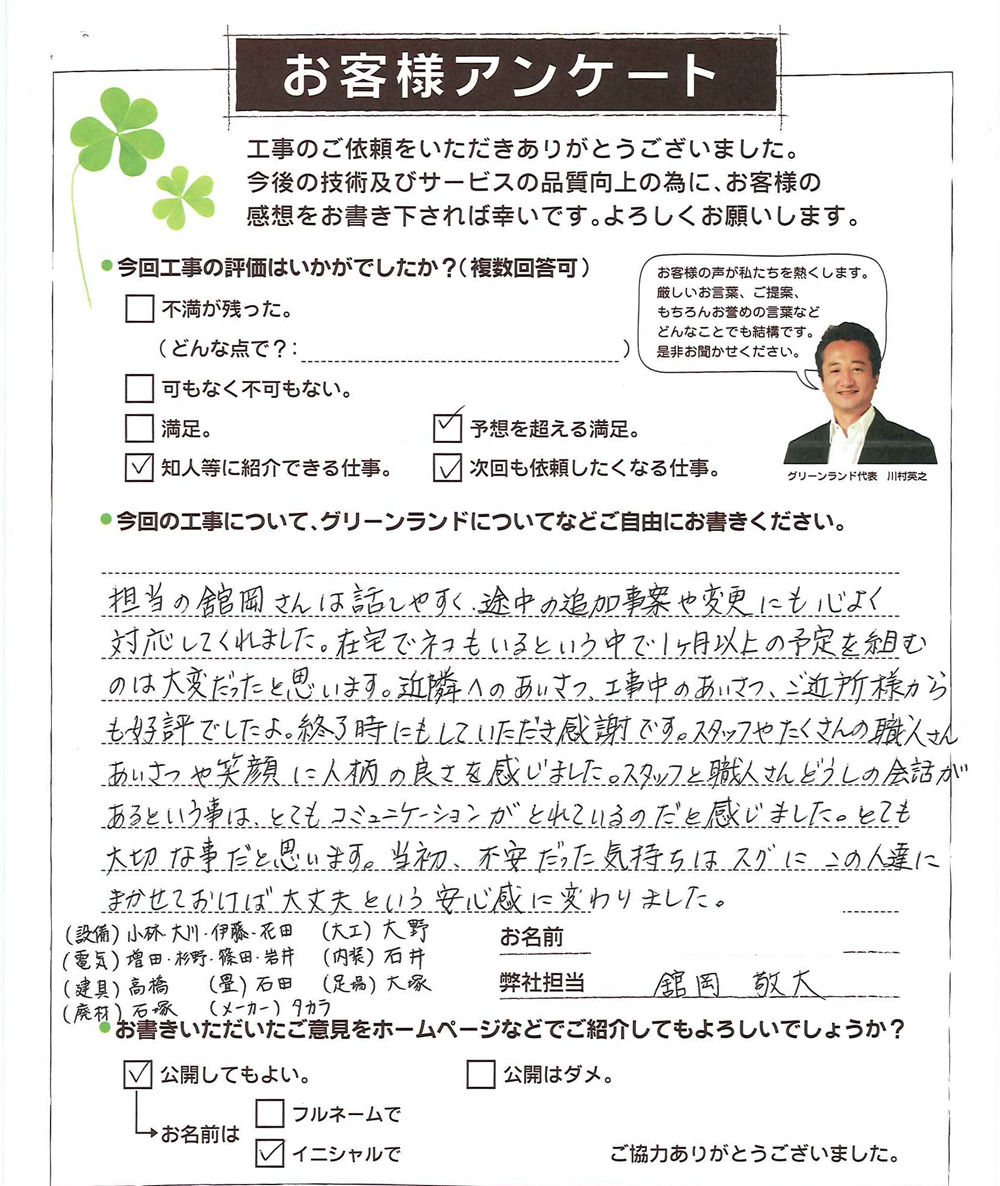 お客様アンケート
工事のご依頼をいただきありがとうございました。
今後の技術及びサービスの品質向上の為に、お客様の
感想をお書き下されば幸いです。よろしくお願いします。
今回工事の評価はいかがでしたか？（複数回答可）
不満が残った。
（どんな点で？：　　）
可もなく不可もない。
満足。
予想を超える満足。
知人等に紹介できる仕事。
次回も依頼したくなる仕事。
お客様の声が私たちを熱くします。
厳しいお言葉、ご提案、
もちろんお誉めの言葉など
どんなことでも結構です。
是非お聞かせください。
グリーンランド代表　川村英之
今回の工事について、グリーンランドについてなどご自由にお書きください。
担当の舘岡さんは話しやすく、途中の追加事案や変更にも心よく
対応してくれました。在宅でネコもいるという中で1ヶ月以上の予定を組む
のは大変だったと思います。近隣へのあいさつ、工事中のあいさつ、ご近所様から
も好評でしたよ。終了時にもしていただき感謝です。スタッフやたくさんの職人さん
あいさつや笑顔に人柄の良さを感じました。スタッフと職人さんどうしの会話が
あるという事は、とてもコミュニケーションがとれているのだと感じました。とても
大切な事だと思います。当初、不安だった気持ちはスグにこの人達に
まかせておけば大丈夫という安心感に変わりました。
（設備）小林・大川・伊藤・花田　（大工）大野
（電気）増田・杉野・篠田・岩井　（内装）石井
（建具）高橋　（畳）石田　（足場）大塚
（廃材）石塚　（メーカー）タカラ
お名前
弊社担当　舘岡　敬大
お書きいただいたご意見をホームページなどでご紹介してもよろしいでしょうか？
公開してもよい。
公開はダメ。
お名前は
フルネームで
イニシャルで
ご協力ありがとうございました。